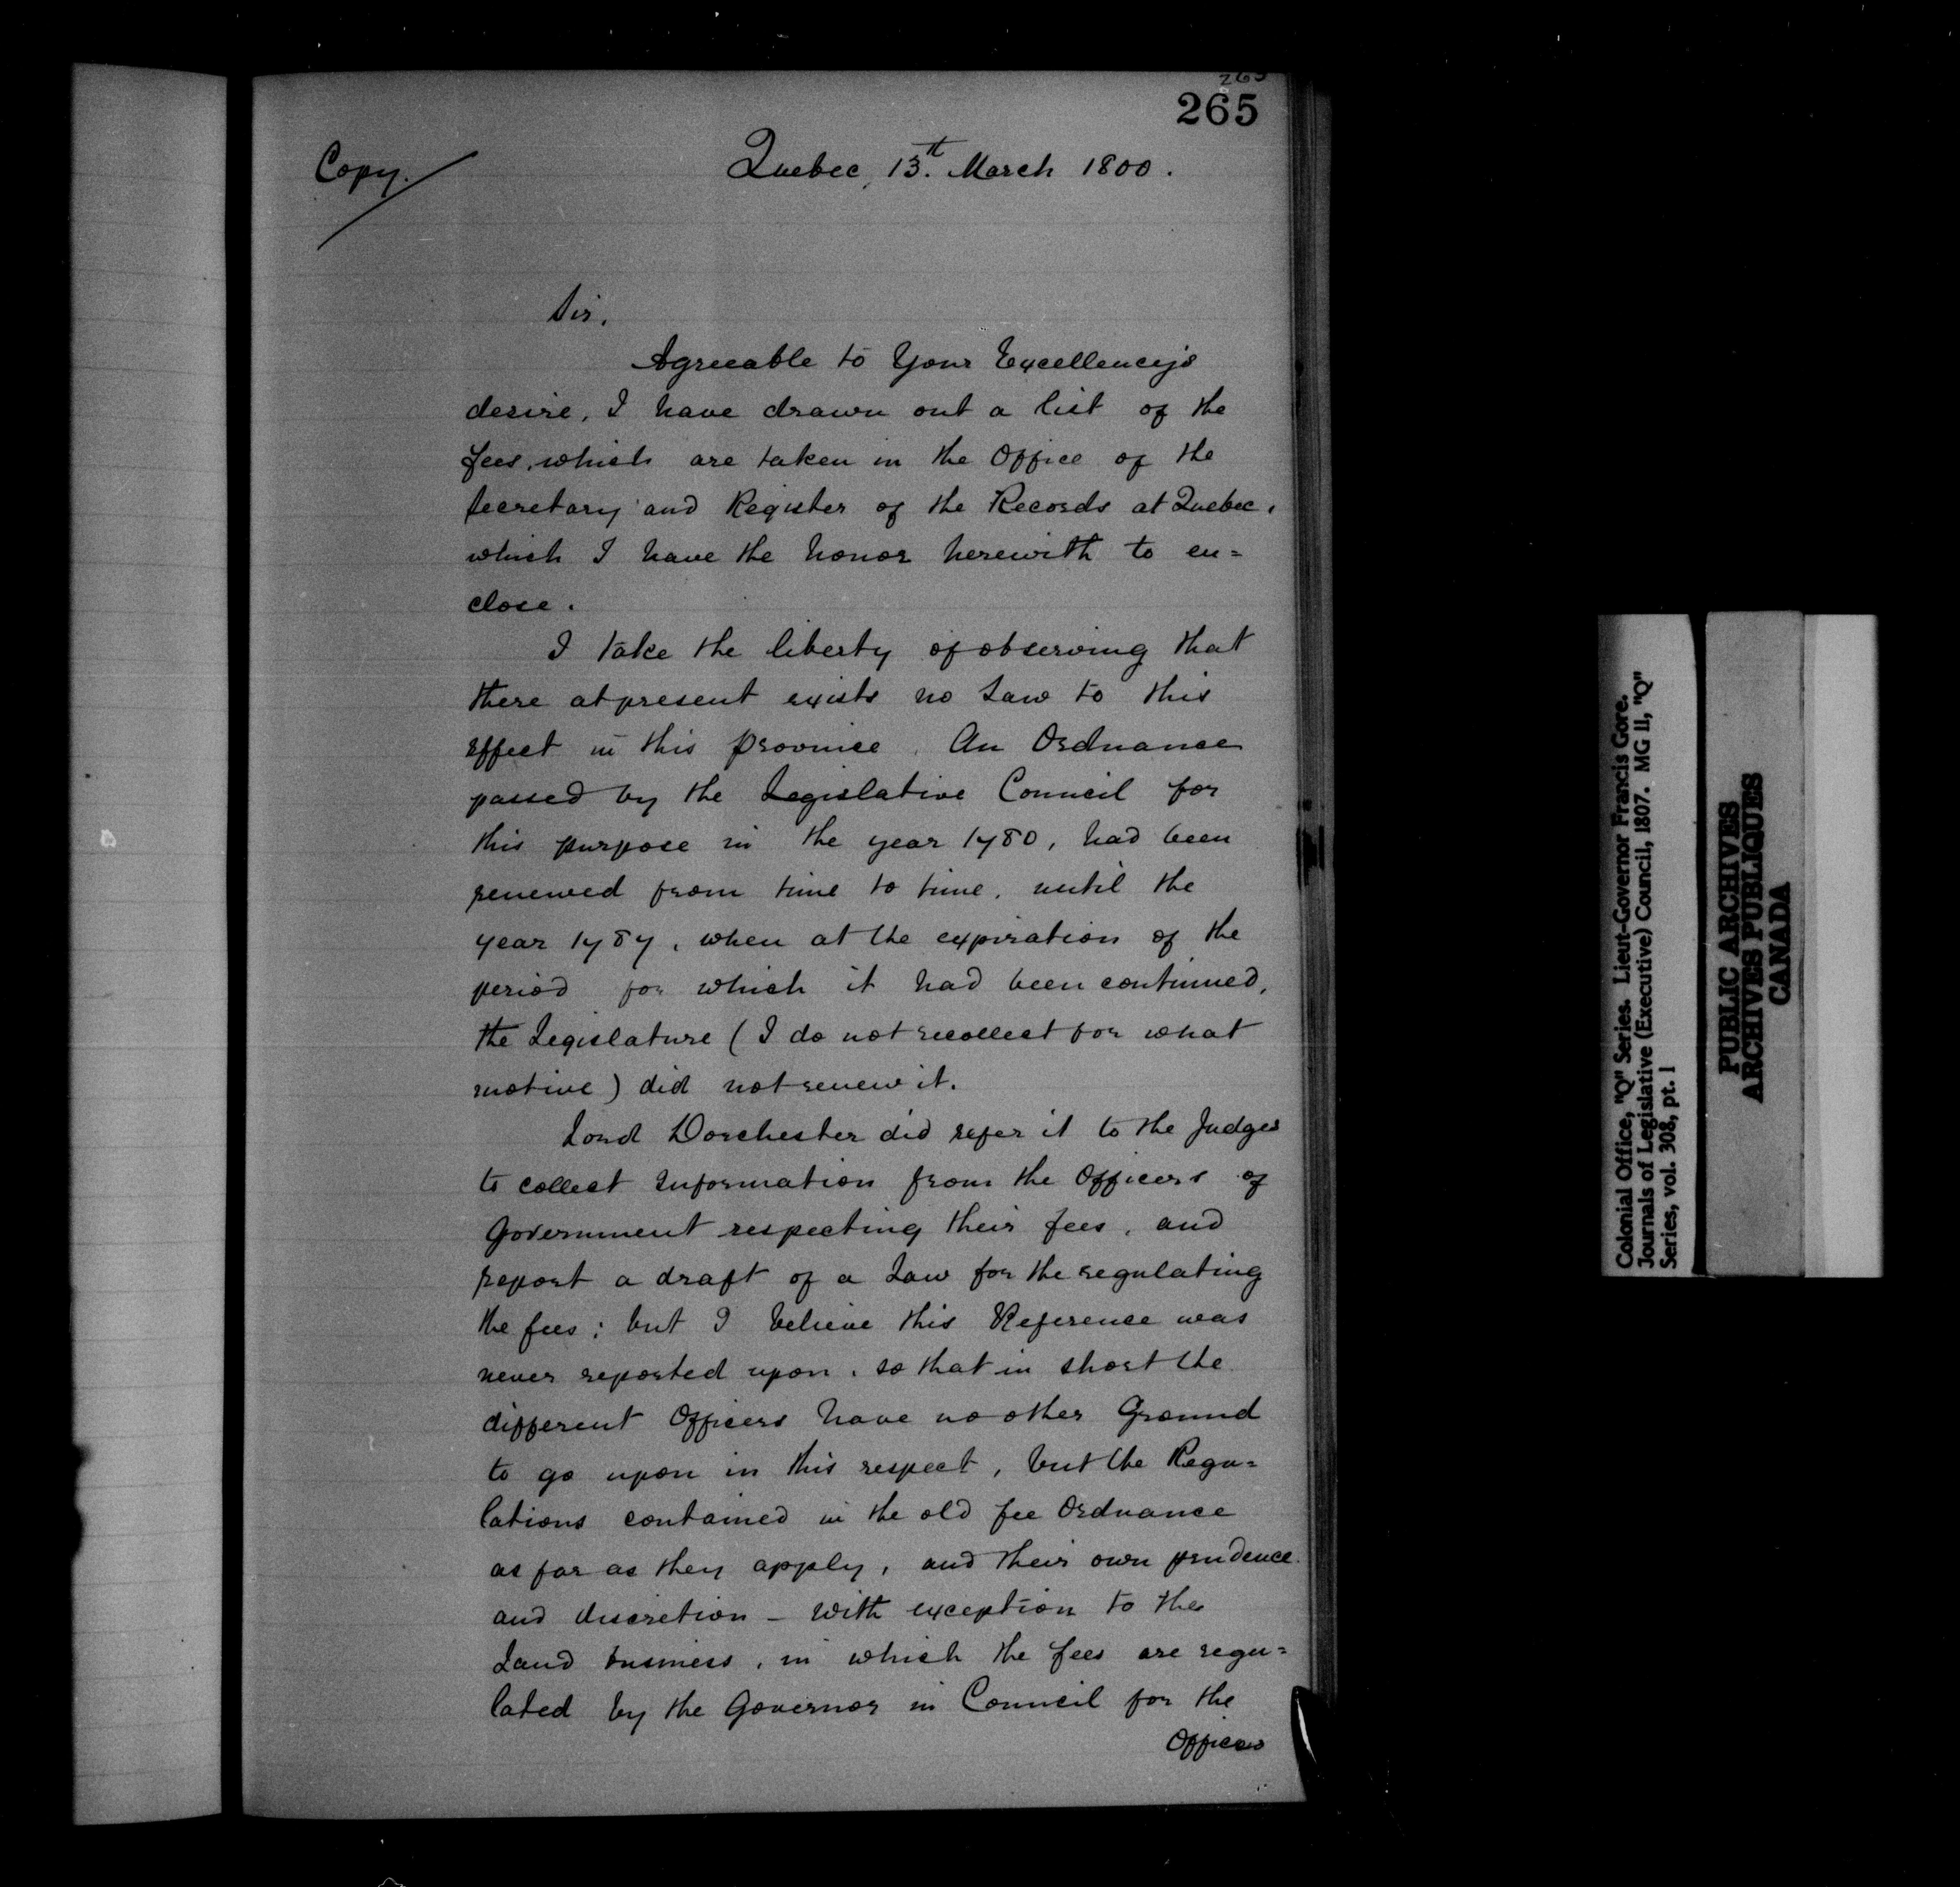 265
265
Copy.
Quebec, 13.th March 1800.
Sir,
Agreeable to Your Excellency's
desire, I have drawn out a list of the
fees, which are taken in the Office of the
Secretary and Register of the Records at Quebec,
which I have the honor herewith to en=
close.
I take the liberty of observing that
there at present exists no Law to this
effect in this province. An Ordnance
passed by the Legislative Council for
this purpose in the year 1780, had been
renewed from time to time, until the
year 1787, when at the expiration of the
period for which it had been continued,
the Legislature (I do not recollect for what
motive) did not renew it.
Lord Dorchester did refer it to the Judges
to collect Information from the Officers of
Government respecting their fees, and
report a draft of a Law for the regulating
the fees; but I believe this Reference was
never reported upon, so that in short the
different Officers have no other Ground
to go upon in this respect, but the Regu=
lations contained in the old fee Ordnance
as far as they apply, and their own prudence
and discretion - with exception to the
Land business, in which the fees are regu=
lated by the Governor in Council for the
Officers
Colonial Office, "Q" Series. Lieut-Governor Francis Gore.
Journals of Legislative (Executive) Council, 1807. MG 11, "Q"
Series, vol. 308, pt. 1
PUBLIC ARCHIVES
ARCHIVES PUBLIQUES
CANADA